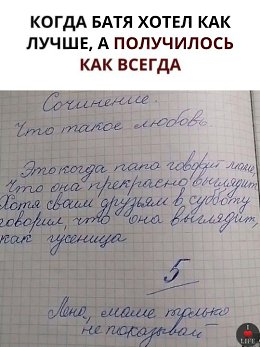 КОГДА БАТЯ ХОТЕЛ КАК
ЛУЧШЕ, А ПОЛУЧИЛОСЬ
КАК ВСЕГДА
Сочинение.
Что такое любовь
Это когда папа говорит маме,
Что она прекрасно выглядит
Хотя своим друзьям в субботу
говорил, что она выглядит,
как гусеница
5
Лена, маме только
не показывай
I
LIFE